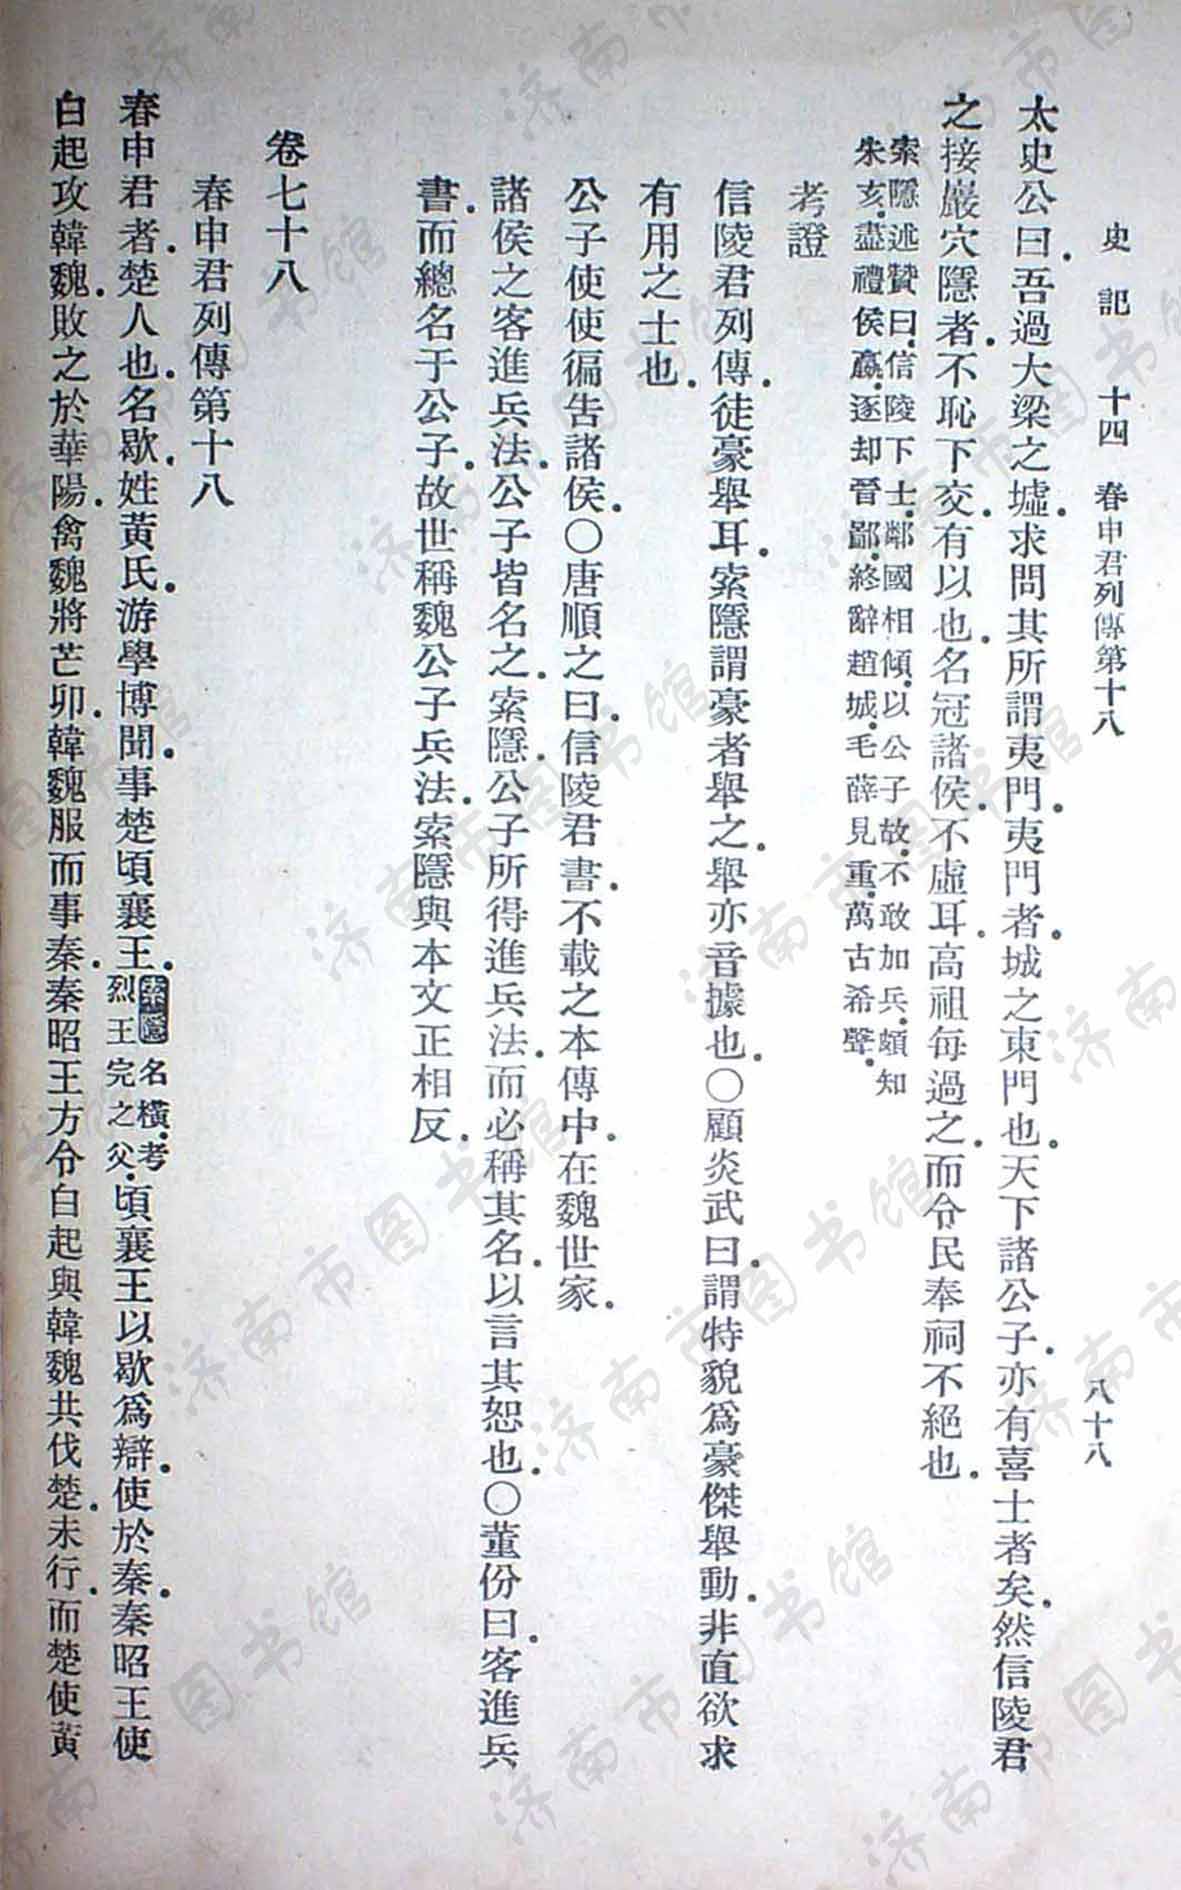 史記　十四　春申君列傳第十八　八十八
太史公曰．吾過大梁之墟．求問其所謂夷門．夷門者．城之東門也．天下諸公子．亦有喜士者矣．然信陵君
之接巖穴隱者．不恥下交．有以也．名冠諸侯．不虛耳．高祖每過之．而令民奉祠不絕也．
索隱述贊曰．信陵下士．鄰國相傾．以公子故．不敢加兵．頗知
朱亥．盡禮侯嬴．逐却晉鄙．終辭趙城．毛薛見重．萬古希聲．
考證
信陵君列傳．徒豪舉耳．索隱謂豪者舉之．舉亦音據也．○顧炎武曰．謂特貌爲豪傑舉動．非直欲求
有用之士也．
公子使使徧告諸侯．○唐順之曰．信陵君書．不載之本傳中．在魏世家．
諸侯之客進兵法．公子皆名之．索隱．公子所得進兵法．而必稱其名．以言其恕也．○董份曰．客進兵
書．而總名于公子．故世稱魏公子兵法．索隱與本文正相反．
卷七十八
春申君列傳第十八
春申君者．楚人也．名歇．姓黃氏．游學博聞．事楚頃襄王．
索隱名橫．考
烈王完之父．
頃襄王以歇爲辯．使於秦．秦昭王使
白起攻韓魏．敗之於華陽．禽魏將芒卯．韓魏服而事秦．秦昭王方令白起與韓魏共伐楚．未行．而楚使黃
济南市图书馆